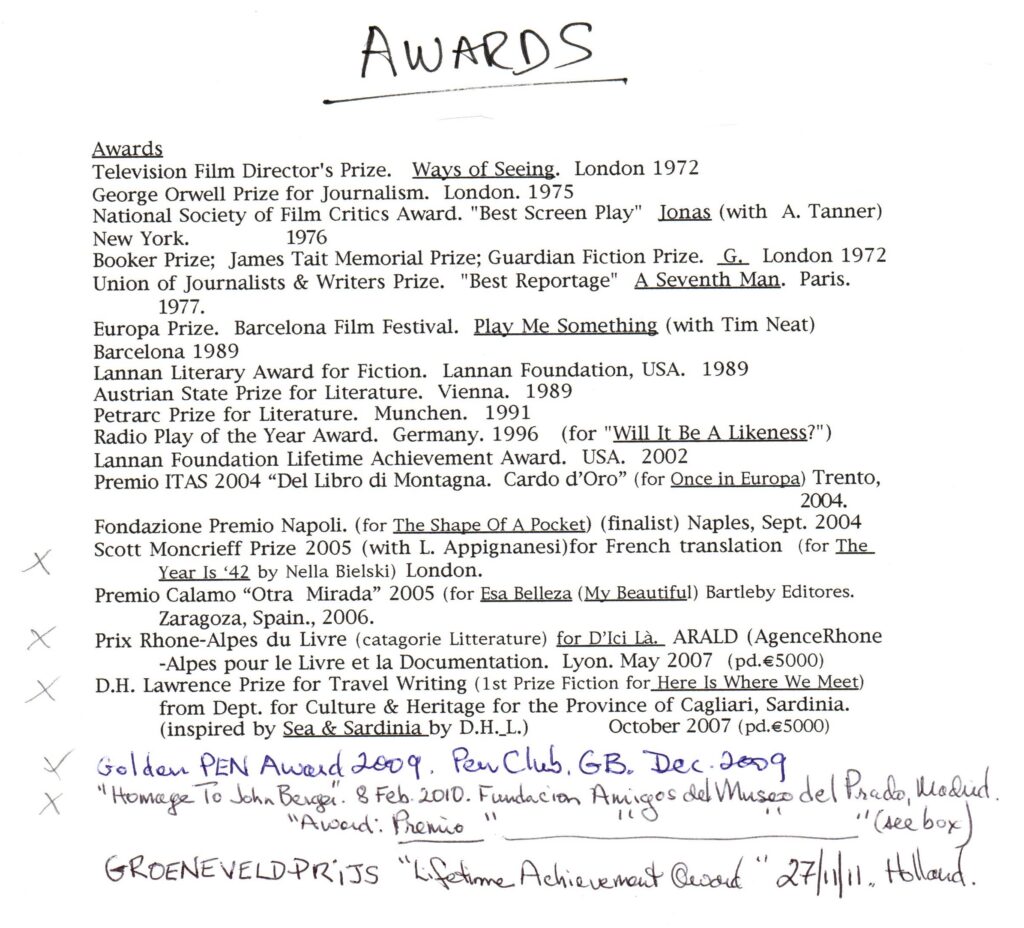 AWARDS
Awards
Television Film Director's Prize. Ways of Seeing. London 1972
George Orwell Prize for Journalism. London. 1975
National Society of Film Critics Award. "Best Screen Play" Jonas (with A. Tanner)
New York. 1976
Booker Prize; James Tait Memorial Prize; Guardian Fiction Prize. G. London 1972
Union of Journalists & Writers Prize. "Best Reportage" A Seventh Man. Paris.
1977.
Europa Prize. Barcelona Film Festival. Play Me Something (with Tim Neat)
Barcelona 1989
Lannan Literary Award for Fiction. Lannan Foundation, USA. 1989
Austrian State Prize for Literature. Vienna. 1989
Petrarc Prize for Literature. Munchen. 1991
Radio Play of the Year Award. Germany. 1996 (for "Will It Be A Likeness?")
Lannan Foundation Lifetime Achievement Award. USA. 2002
Premio ITAS 2004 “Del Libro di Montagna. Cardo d’Oro” (for Once in Europa) Trento,
2004.
Fondazione Premio Napoli. (for The Shape Of A Pocket) (finalist) Naples, Sept. 2004
X Scott Moncrieff Prize 2005 (with L. Appignanesi)for French translation (for The
Year Is ‘42 by Nella Bielski) London.
Premio Calamo “Otra Mirada” 2005 (for Esa Belleza (My Beautiful) Bartleby Editores.
Zaragoza, Spain., 2006.
X Prix Rhone-Alpes du Livre (catagorie Litterature) for D’Ici Là. ARALD (AgenceRhone
-Alpes pour le Livre et la Documentation. Lyon. May 2007 (pd.€5000)
X D.H. Lawrence Prize for Travel Writing (1st Prize Fiction for Here Is Where We Meet)
from Dept. for Culture & Heritage for the Province of Cagliari, Sardinia.
(inspired by Sea & Sardinia by D.H._L.) October 2007 (pd.€5000)
X Golden PEN Award 2009. Pen Club. GB. Dec. 2009
X "Homage To John Berger". 8 Feb. 2010. Fundacion Amigos del Museo del Prado, Madrid.
"Award: Premio " " " " (see box)
GROENEVELD-PRIJS "Lifetime Achievement Award" 27/11/11. Holland.